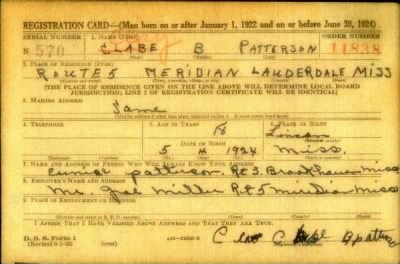 REGISTRATION CARD—(Men born on or after January 1, 1922 and on or before June 30, 1924)
SERIAL NUMBER 1. NAME (Print) ORDER NUMBER
N 570 CLABE B PATTERSON 11838
(First) (Middle) (Last)
2. PLACE OF RESIDENCE (Print)
ROUTE 5 MERIDIAN LAUDERDALE MISS
[THE PLACE OF RESIDENCE GIVEN ON THE LINE ABOVE WILL DETERMINE LOCAL BOARD
JURISDICTION; LINE 2 OF REGISTRATION CERTIFICATE WILL BE IDENTICAL]
3. MAILING ADDRESS
Same
4. TELEPHONE 5. AGE IN YEARS 6. PLACE OF BIRTH
18 Lincoln
DATE OF BIRTH
5 4 1924 Miss.
7. NAME AND ADDRESS OF PERSON WHO WILL ALWAYS KNOW YOUR ADDRESS
patterson. Rt 3. Brookhaven Miss
8. EMPLOYER'S NAME AND ADDRESS
Mr Miller Rt 5 Miss
9. PLACE OF EMPLOYMENT OR BUSINESS
I AFFIRM THAT I HAVE VERIFIED ABOVE ANSWERS AND THAT THEY ARE TRUE.
D. S. S. Form 1
(over)
B patterson